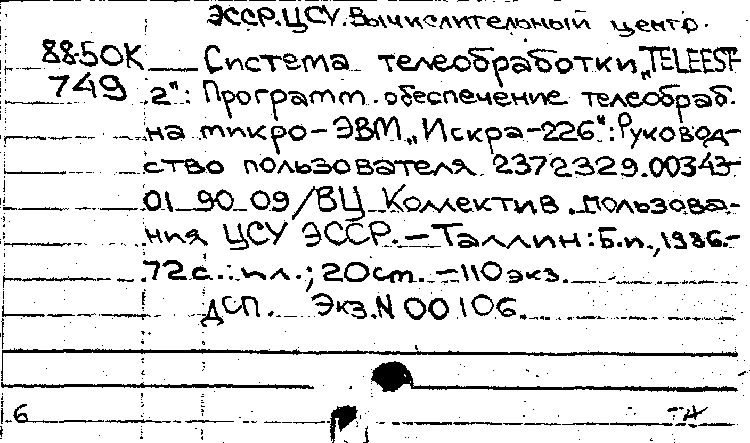 ЭССР.ЦСУ.Вычислительный центр.
88-50К Система телеобработки „TELEEST-
749 2": Программ. обеспечение телеобраб.
на микро-ЭВМ „Искра-226": Руковод-
ство пользователя 2372329.00343-
01 90 09/ВЦ Коллектив. пользова-
ния ЦСУ ЭССР.-Таллин: Б.и., 1986.-
72с.: ил.; 20см. -110экз.
ДСП. Экз.N 00106.
6